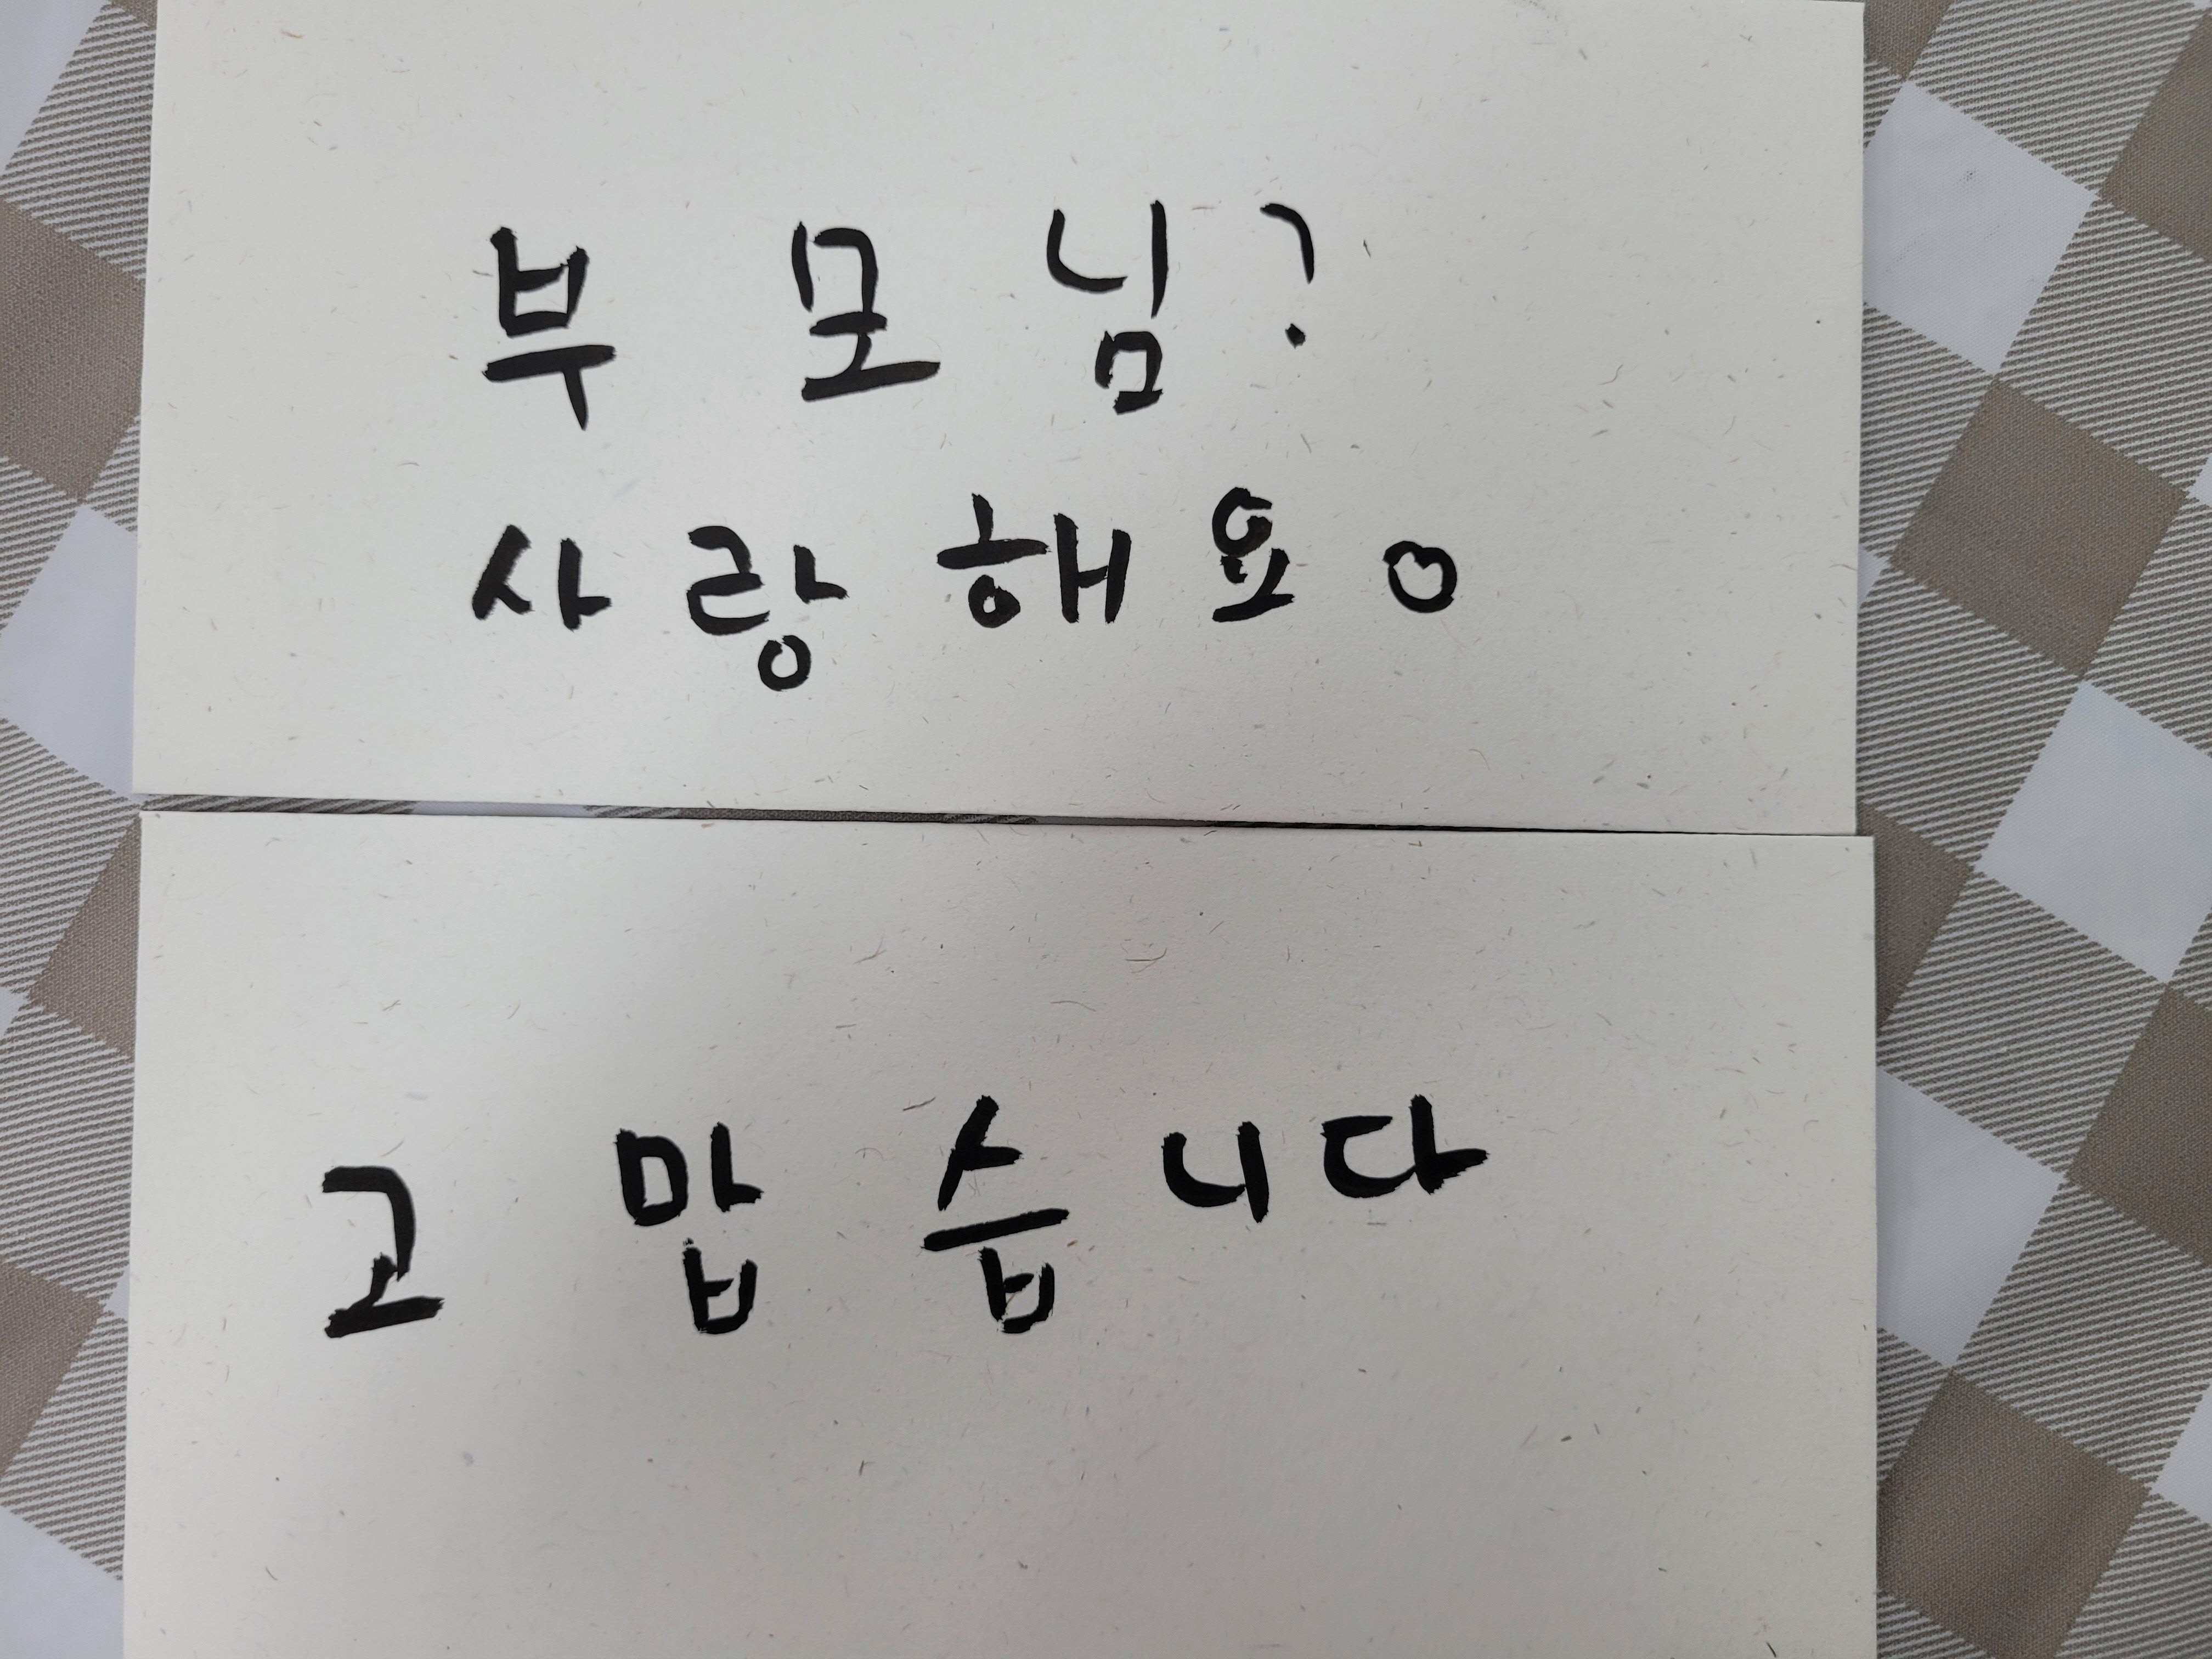 부모님?
사랑해요♡
고맙습니다